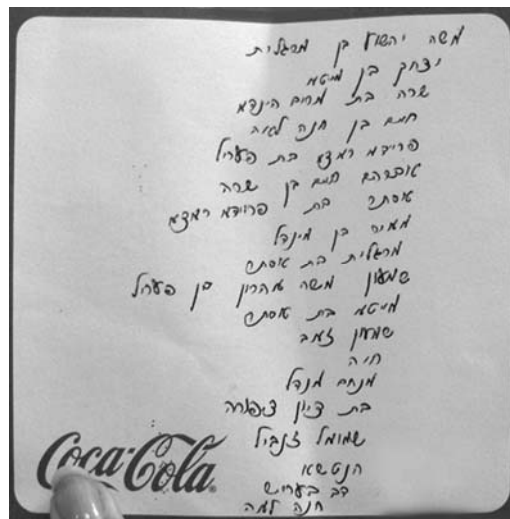 משה יהושע בן מרגלית
יצחק בן מיטא
שרה בת מרים הינדא
חיים בן חנה לאה
פרידא ראצא בת פערל
אברהם חיים בן שרה
אסתר בת פרידא ראצא
מאיר בן מינדל
מרגלית בת אסתר
שמעון משה אהרון בן פערל
מייטא בת אסתר
שמעון זאב
חיה
מנחם מנדל
בת ציון ציפורה
שמואל זנביל
הנטשא
דב בעריש
חנה לאה
Coca-Cola